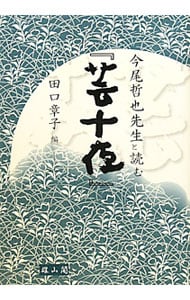 今尾哲也先生と読む
『芸十夜』
田口章子 編
雄山閣